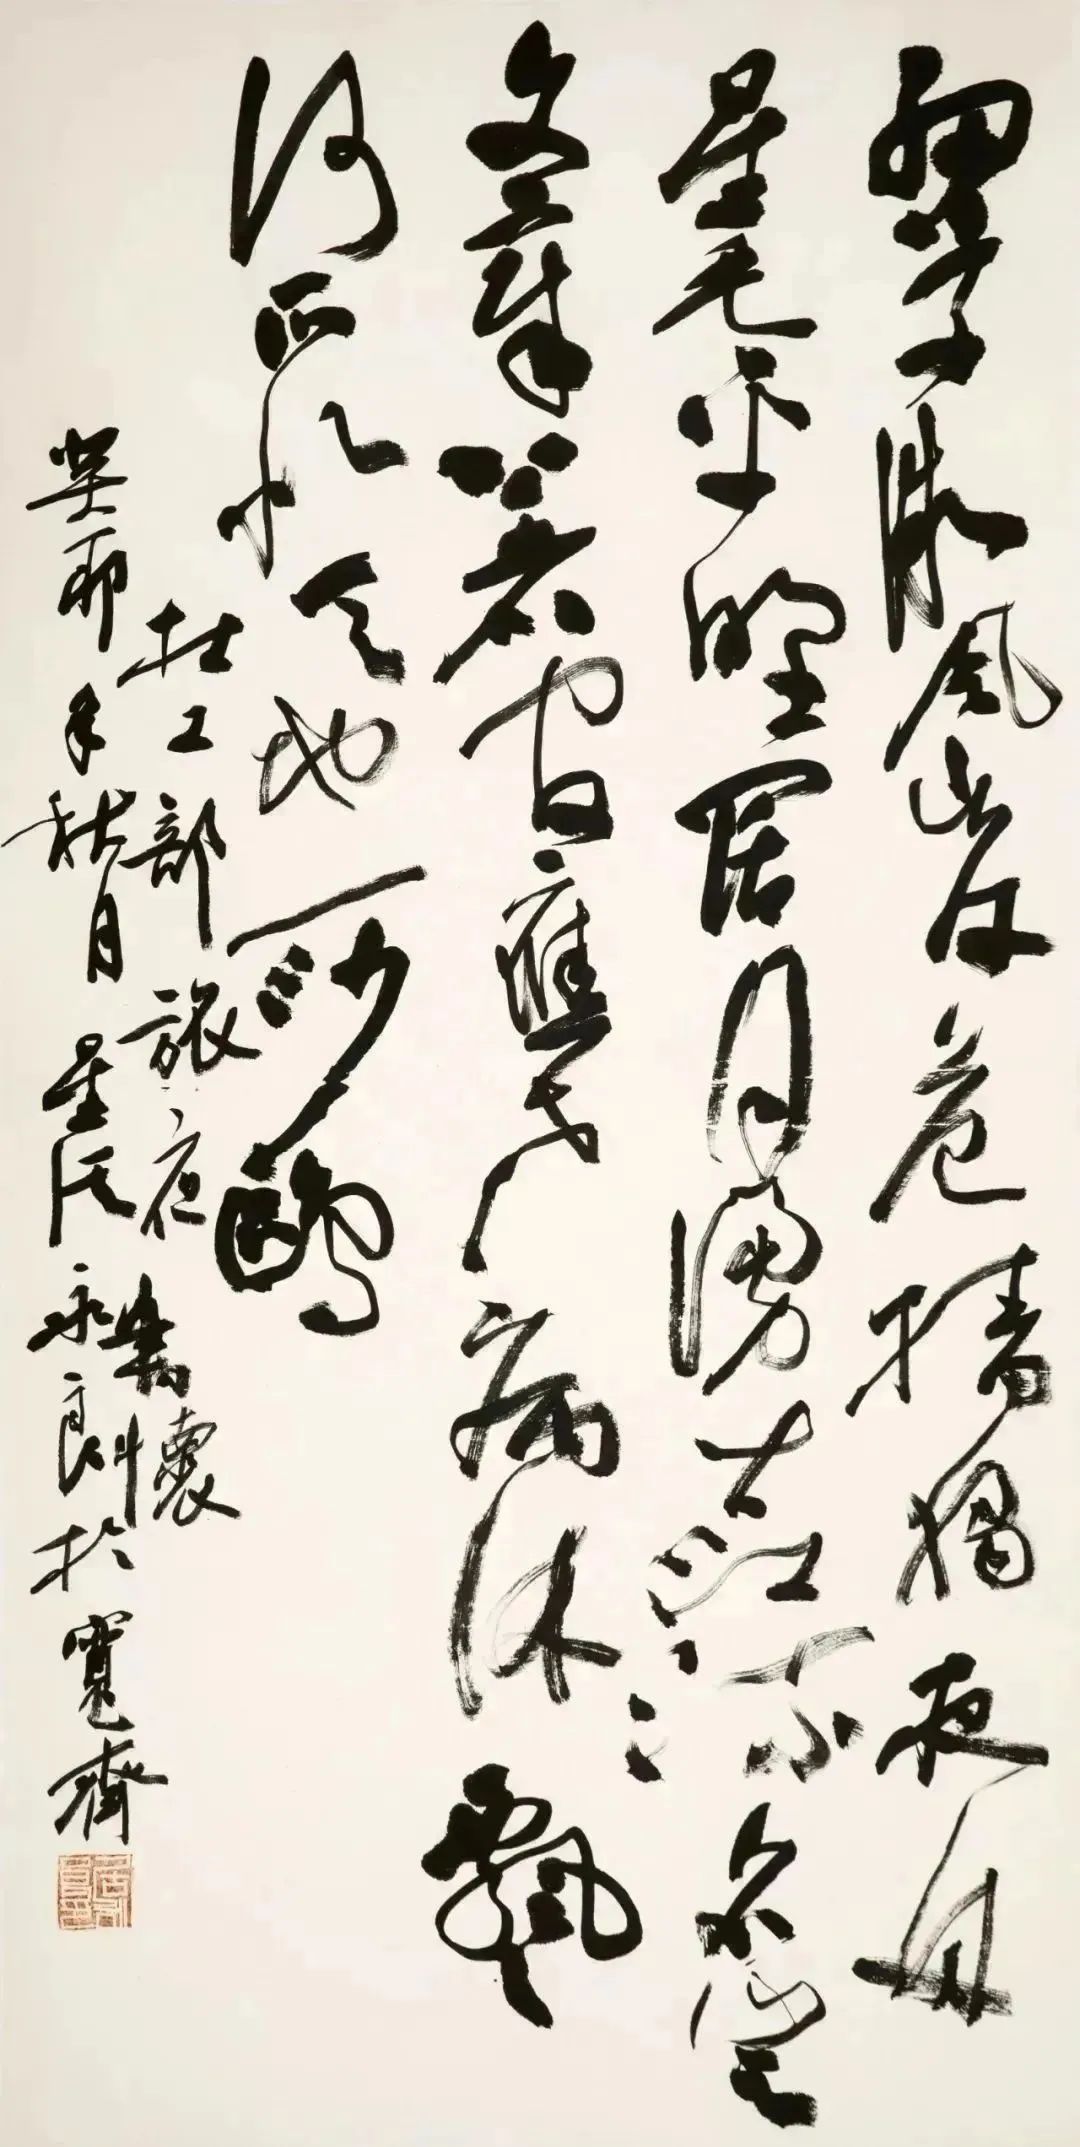 細草微風岸危檣獨夜舟
星垂平野闊月湧大江流名豈
文章著官應老病休飄
何所似天地一沙鷗
杜工部旅夜書懷
癸卯年秋月星永於寬齋